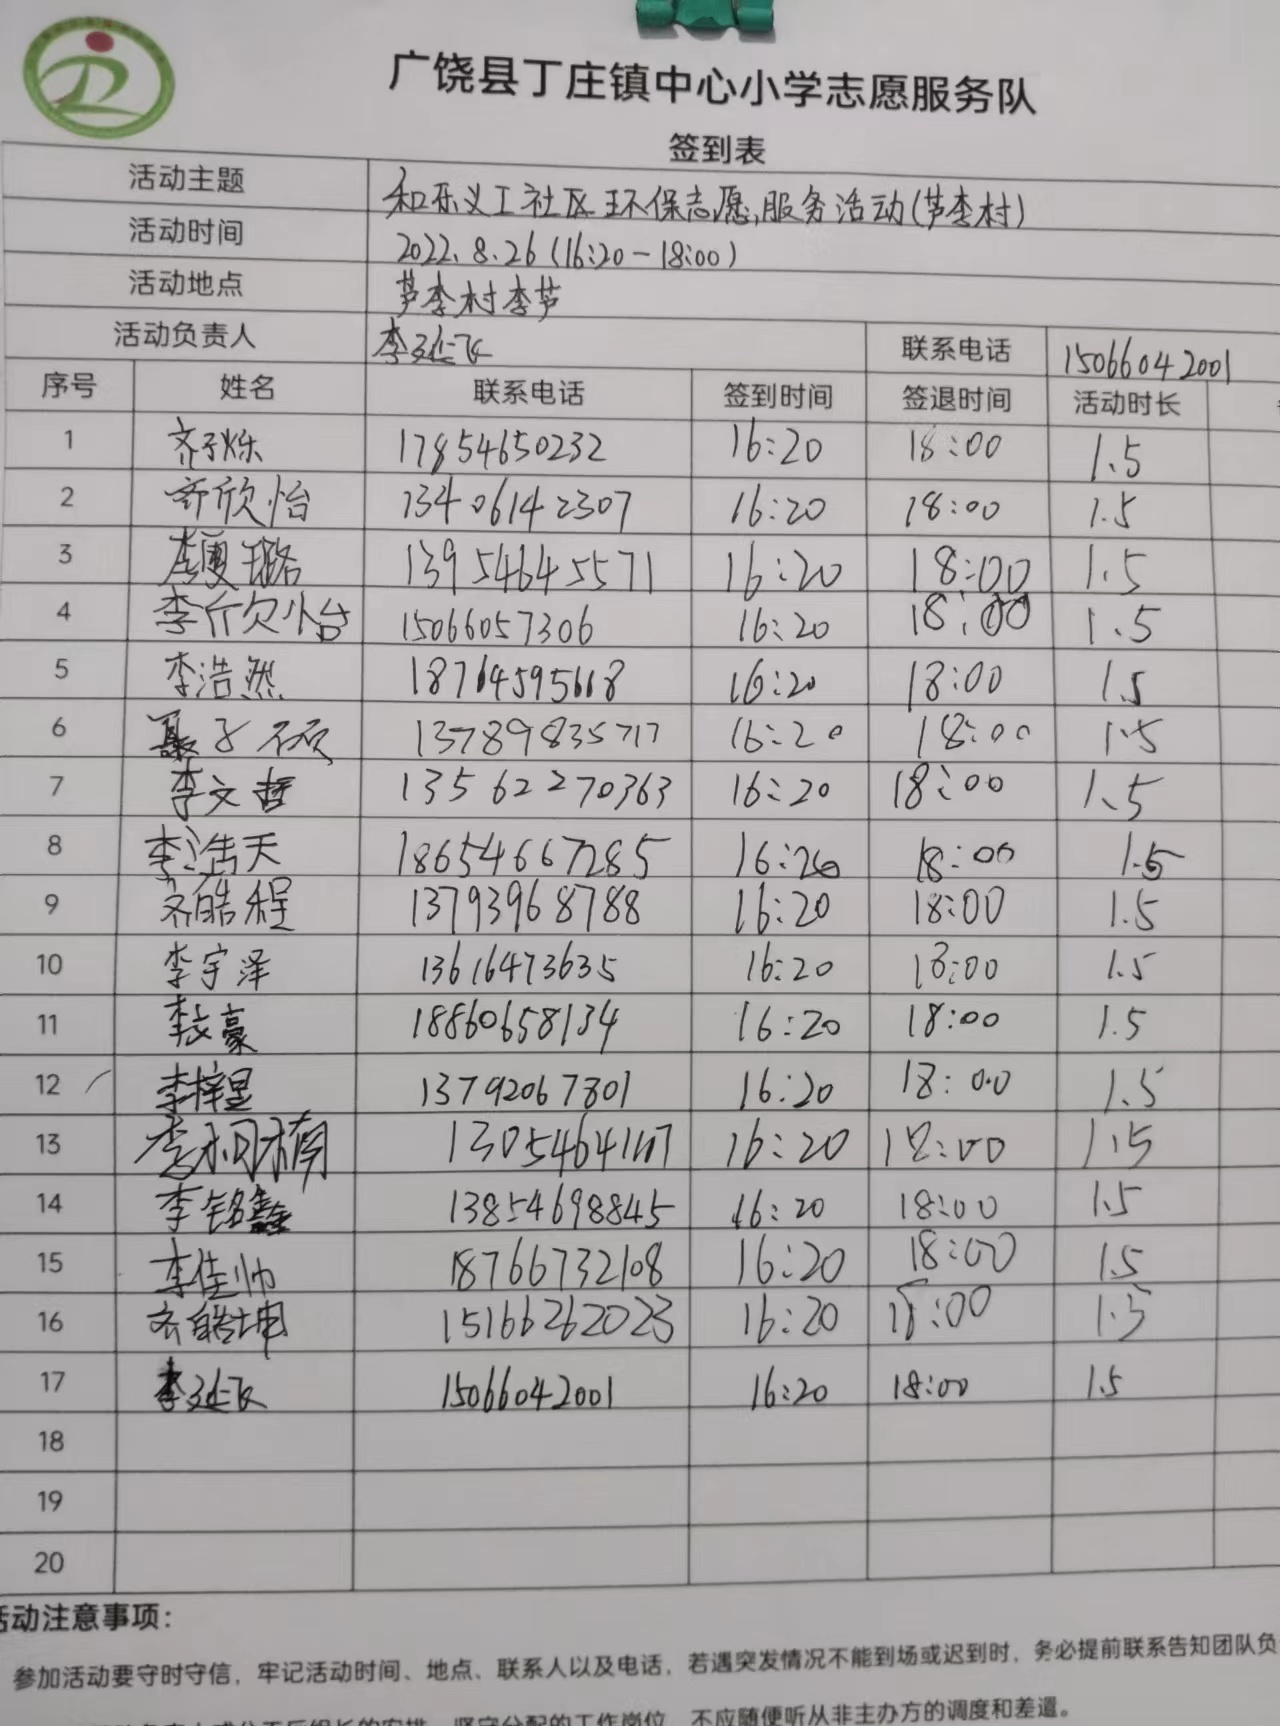 广饶县丁庄镇中心小学志愿服务队
签到表
活动主题 和乐义工社区环保志愿服务活动(芦李村)
活动时间 2022.8.26 (16:20-18:00)
活动地点 芦李村李芦
活动负责人 李延飞 联系电话 15066042001
序号 姓名 联系电话 签到时间 签退时间 活动时长
1 齐子烁 17854650232 16:20 18:00 1.5
2 齐欣怡 13406142307 16:20 18:00 1.5
3 李夏璐 13954645571 16:20 18:00 1.5
4 李欣怡 15066057306 16:20 18:00 1.5
5 李浩然 18764595668 16:20 18:00 1.5
6 聂子硕 13789835717 16:20 18:00 1.5
7 李文哲 13562270363 16:20 18:00 1.5
8 李浩天 18654667285 16:20 18:00 1.5
9 齐皓程 13793968788 16:20 18:00 1.5
10 李宇泽 13616473635 16:20 18:00 1.5
11 李文豪 18860658134 16:20 18:00 1.5
12 李梓昱 13792067801 16:20 18:00 1.5
13 李桐楠 16:20 18:00 1.5
14 李铭鑫 13854698845 16:20 18:00 1.5
15 李佳帅 18766732108 16:20 18:00 1.5
16 齐皓坤 15166262023 16:20 18:00 1.5
17 李延飞 15066042001 16:20 18:00 1.5
18
19
20
活动注意事项：
参加活动要守时守信，牢记活动时间、地点、联系人以及电话，若遇突发情况不能到场或迟到时，务必提前联系告知团队负
的安排，坚守分配的工作岗位，不应随便听从非主办方的调度和差遣。